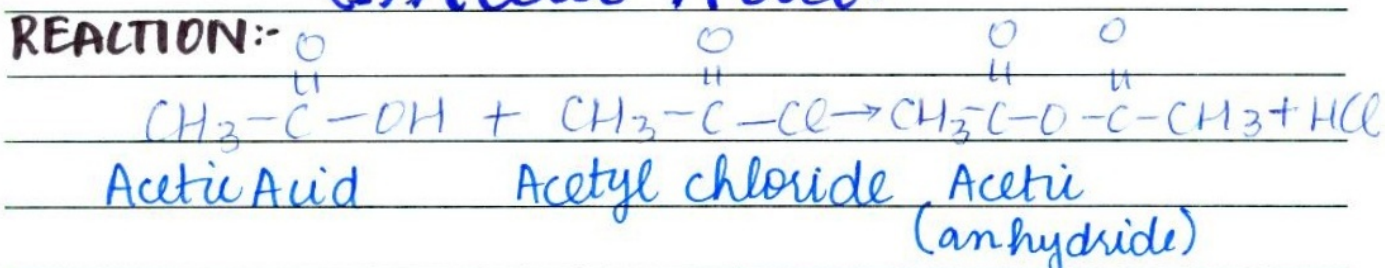 REACTION:-
O O O O
|| || || ||
CH3-C-OH + CH3-C-Cl→CH3-C-O-C-CH3+HCl
Acetic Acid Acetyl chloride Acetic
(anhydride)